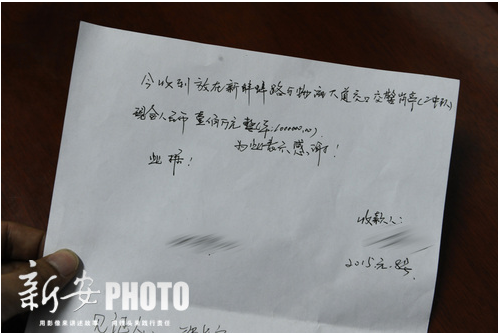 今收到放在新蚌埠路与物流大道交口交警岗亭(二中队)
现金人民币壹佰万元整(¥:1000000.00)
为此表示感谢!
此据!
收款人:
2015.元.8号
见证人:
新安PHOTO
用影像来讲述故事